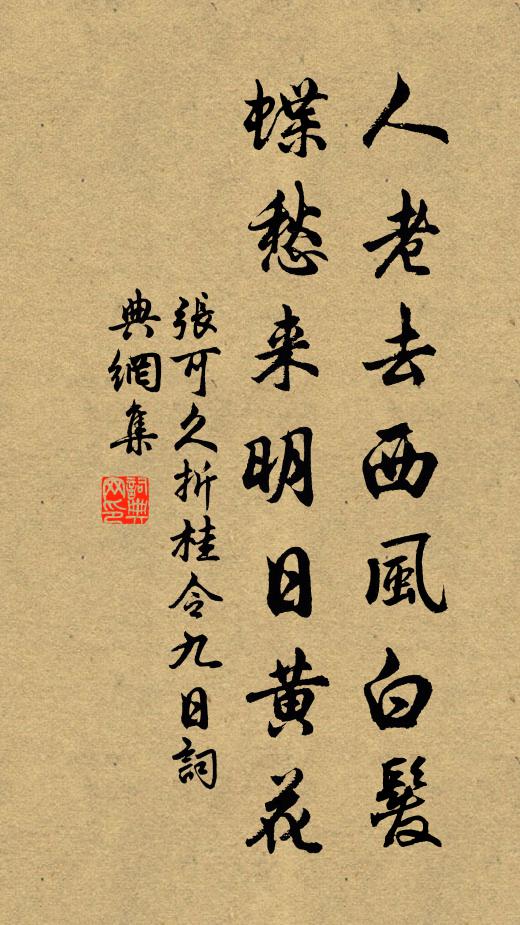 人老去西風白髮
蝶愁来明日黄花
張可久折桂令九日詞
典網集
詞典网印